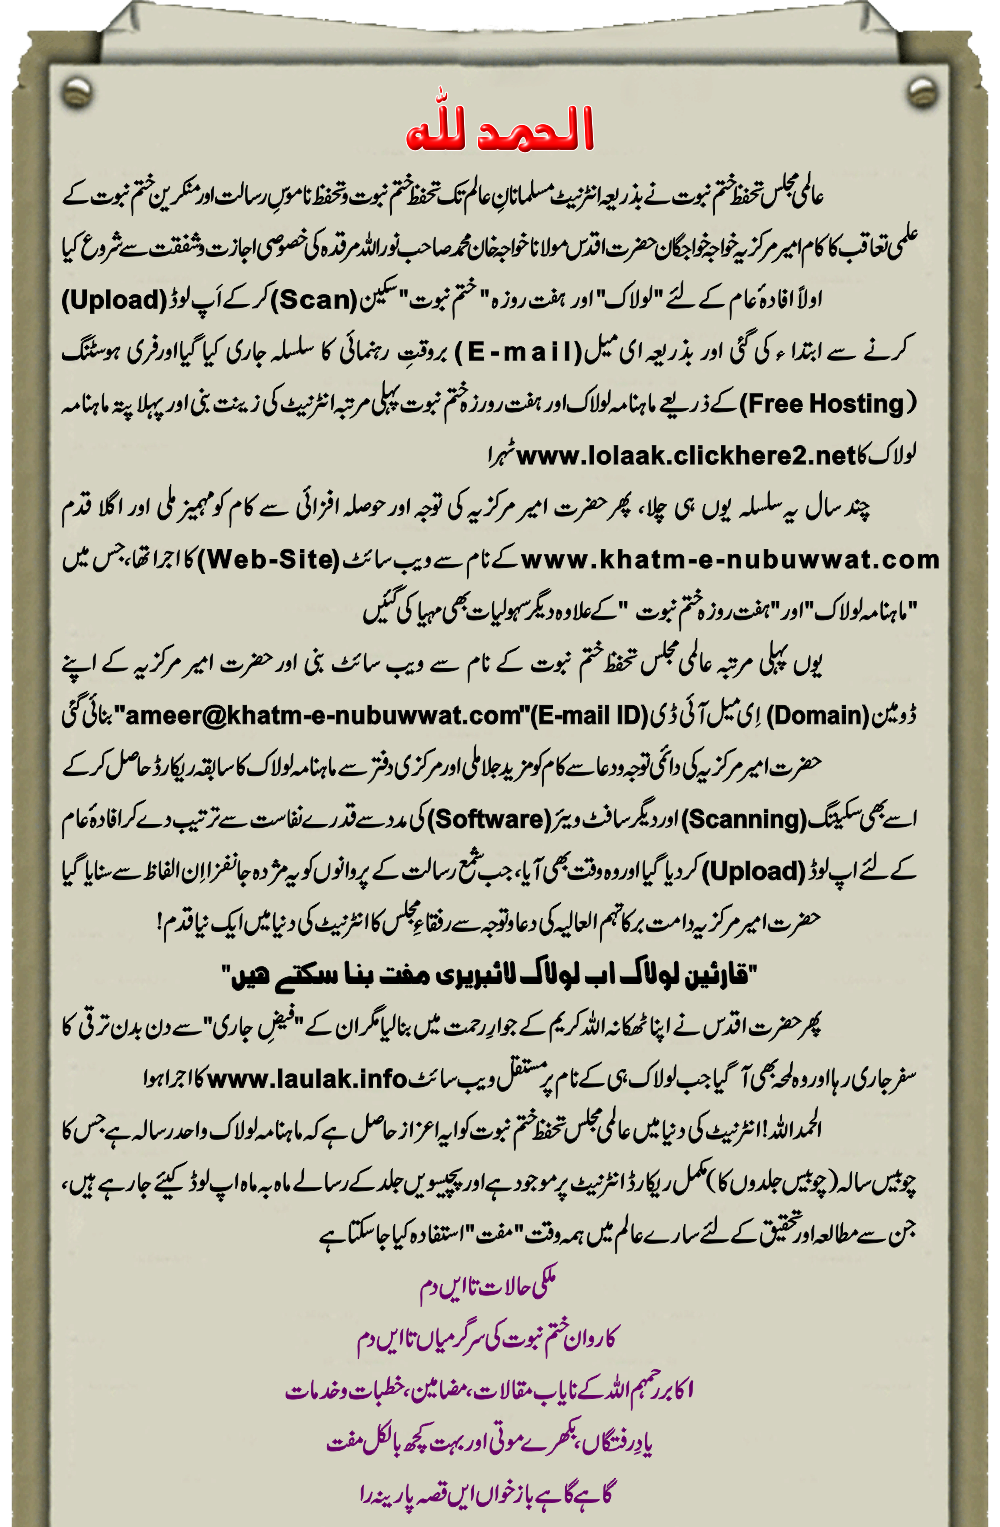 الحمد للہ
عالمی مجلس تحفظ ختم نبوت نے بذریعہ انٹرنیٹ مسلمانانِ عالم تک تحفظ ختم نبوت و تحفظ ناموسِ رسالت اور منکرین ختم نبوت کے
علمی تعاقب کا کام امیر مرکزیہ خواجہ خواجگان حضرت اقدس مولانا خواجہ خان محمد صاحب نور اللہ مرقدہ کی خصوصی اجازت و شفقت سے شروع کیا
اولاً افادۂ عام کے لئے "لولاک" اور ہفت روزہ "ختم نبوت" سکین (Scan) کر کے اَپ لوڈ (Upload)
کرنے سے ابتداء کی گئی اور بذریعہ ای میل (E-mail) بروقتِ رہنمائی کا سلسلہ جاری کیا گیا اور فری ہوسٹنگ
(Free Hosting) کے ذریعے ماہنامہ لولاک اور ہفت روزہ ختم نبوت پہلی مرتبہ انٹرنیٹ کی زینت بنی اور پہلا پتہ ماہنامہ
لولاک کا www.lolaak.clickhere2.net ٹہرا
چند سال یہ سلسلہ یوں ہی چلا، پھر حضرت امیر مرکزیہ کی توجہ اور حوصلہ افزائی سے کام کو مہمیز ملی اور اگلا قدم
www.khatm-e-nubuwwat.com کے نام سے ویب سائٹ (Web-Site) کا اجرا تھا، جس میں
"ماہنامہ لولاک" اور "ہفت روزہ ختم نبوت " کے علاوہ دیگر سہولیات بھی مہیا کی گئیں
یوں پہلی مرتبہ عالمی مجلس تحفظ ختم نبوت کے نام سے ویب سائٹ بنی اور حضرت امیر مرکزیہ کے اپنے
ڈومین (Domain) اِی میل آئی ڈی (E-mail ID) "ameer@khatm-e-nubuwwat.com" بنائی گئی
حضرت امیر مرکزیہ کی دائمی توجہ ودعا سے کام کو مزید جلا ملی اور مرکزی دفتر سے ماہنامہ لولاک کا سابقہ ریکارڈ حاصل کر کے
اسے بھی سکیننگ (Scanning) اور دیگر سافٹ ویئر (Software) کی مدد سے قدرے نفاست سے ترتیب دے کر افادۂ عام
کے لئے اپ لوڈ (Upload) کر دیا گیا اور وہ وقت بھی آیا، جب شمع رسالت کے پروانوں کو یہ مژدہ جانفزا اِن الفاظ سے سنایا گیا
حضرت امیر مرکزیہ دامت برکاتہم العالیہ کی دعا و توجہ سے رفقاءِ مجلس کا انٹرنیٹ کی دنیا میں ایک نیا قدم!
"قارئین لولاک اب لولاک لائبریری مفت بنا سکتے ھیں"
پھر حضرت اقدس نے اپنا ٹھکانہ اللہ کریم کے جوارِ رحمت میں بنا لیا مگر ان کے "فیضِ جاری" سے دن بدن ترقی کا
سفر جاری رہا اور وہ لمحہ بھی آ گیا جب لولاک ہی کے نام پر مستقل ویب سائٹ www.laulak.info کا اجرا ہوا
الحمد اللہ! انٹرنیٹ کی دنیا میں عالمی مجلس تحفظ ختم نبوت کو ایہ اعزاز حاصل ہے کہ ماہنامہ لولاک واحد رسالہ ہے جس کا
چوبیس سالہ (چوبیس جلدوں کا) مکمل ریکارڈ انٹرنیٹ پر موجود ہے اور پچیسویں جلد کے رسالے ماہ بہ ماہ اپ لوڈ کیئے جا رہے ہیں،
جن سے مطالعہ اور تحقیق کے لئے سارے عالم میں ہمہ وقت "مفت" استفادہ کیا جا سکتا ہے
ملکی حالات تا ایں دم
کاروان ختم نبوت کی سرگرمیاں تا ایں دم
اکابر رحمہم اللہ کے نایاب مقالات، مضامین، خطبات و خدمات
یادِ رفتگاں، بکھرے موتی اور بہت کچھ بالکل مفت
گاہے گاہے باز خواں ایں قصہ پارینہ را